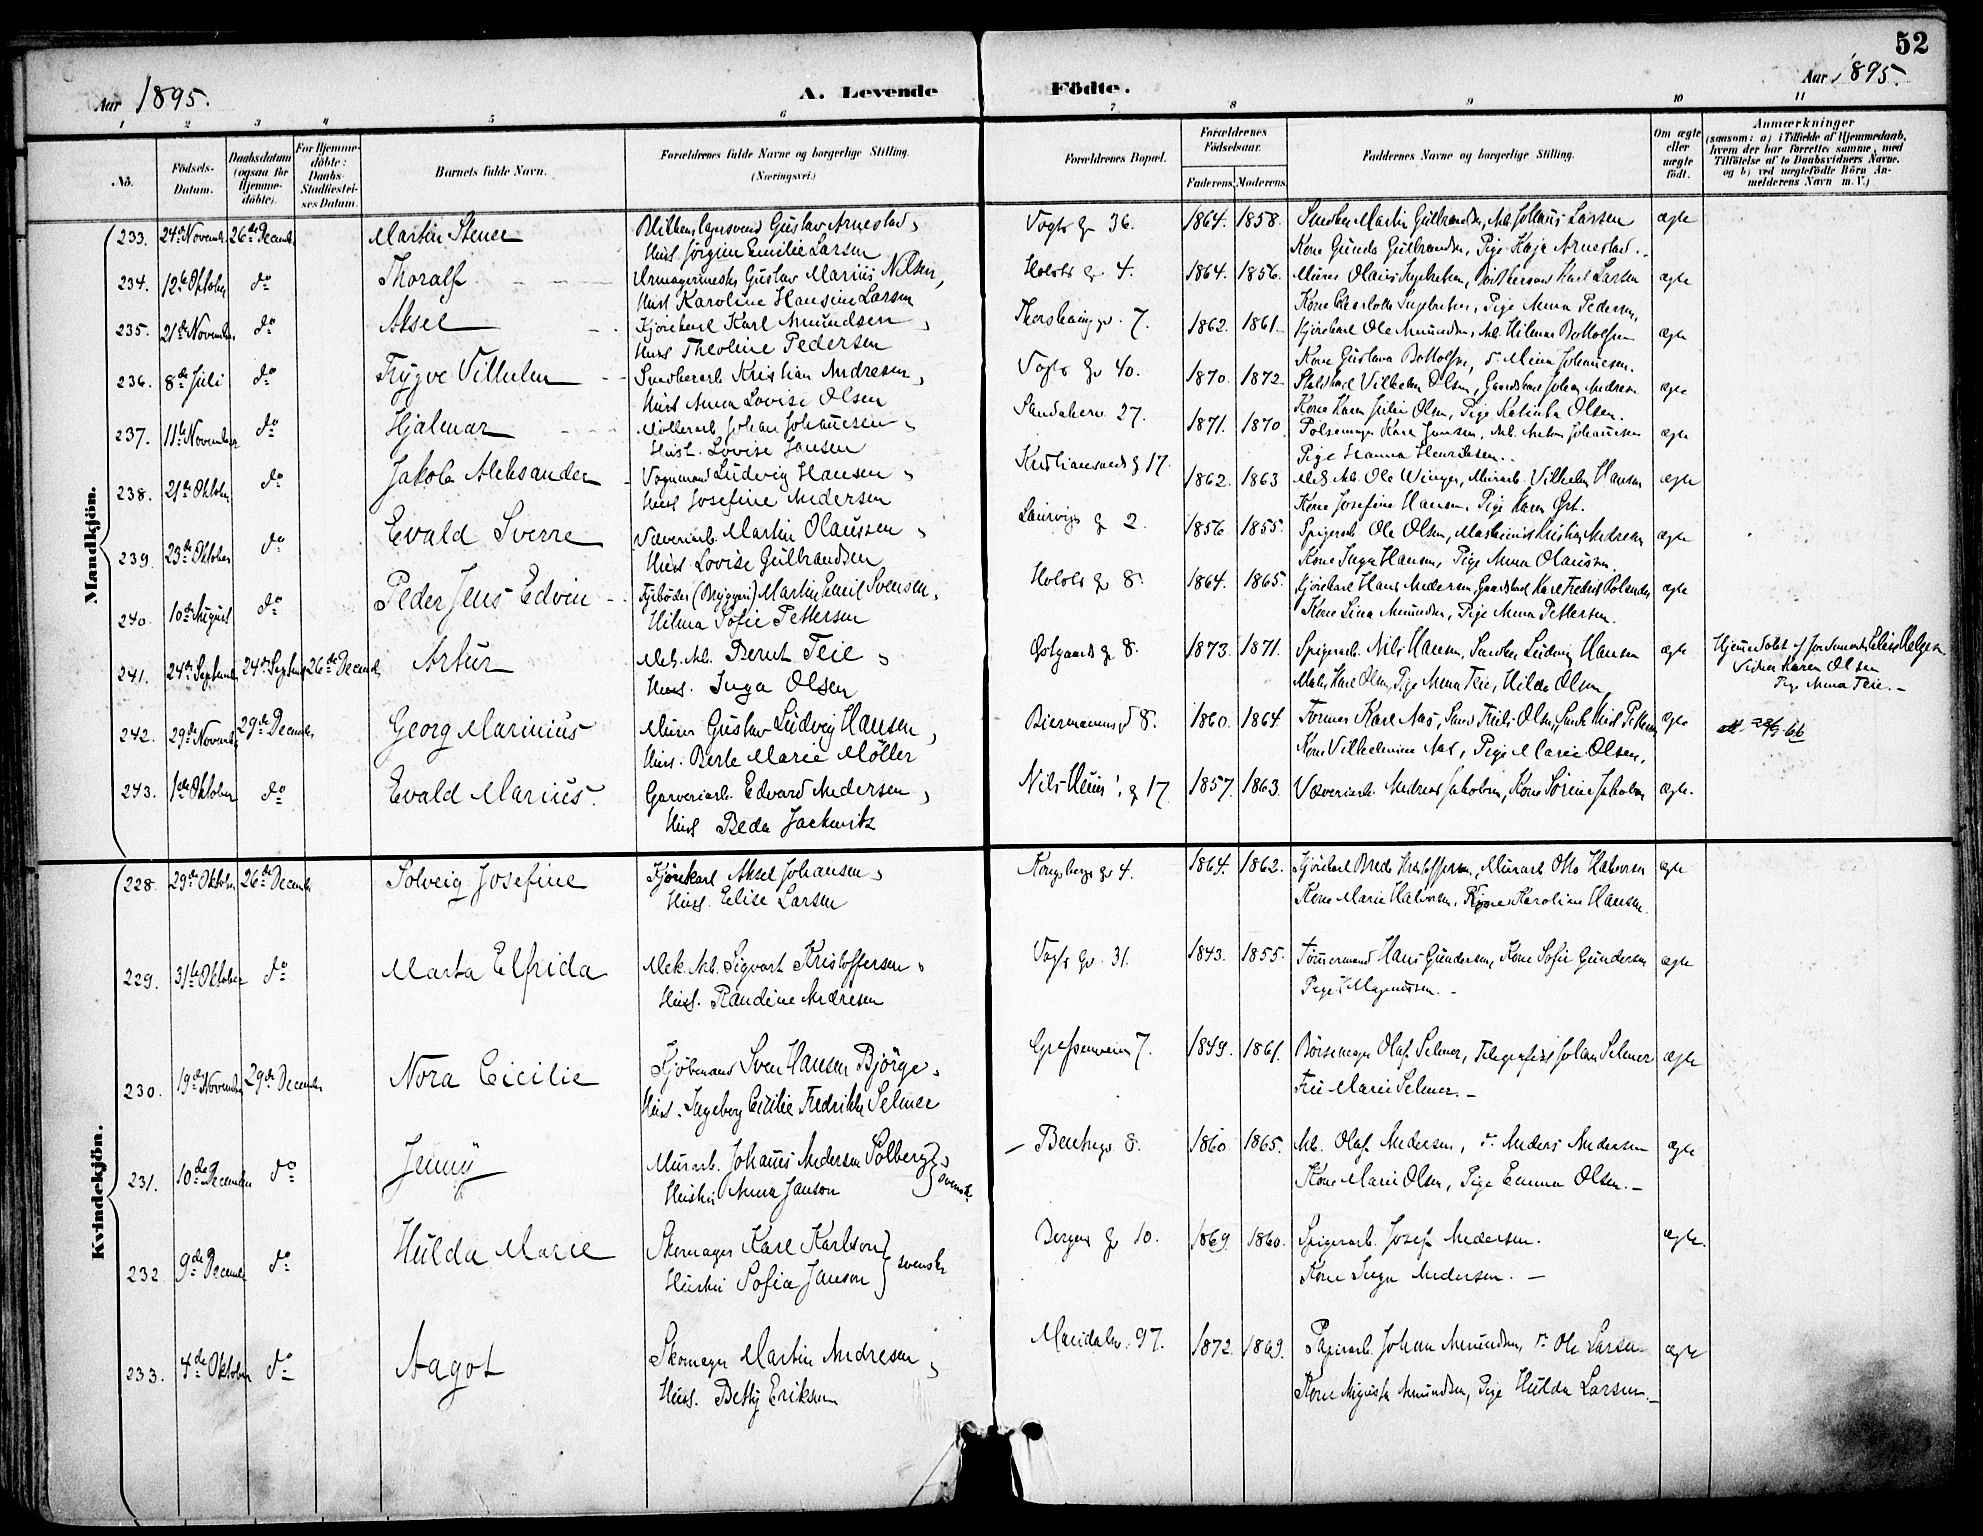 52
Aar 1895.
A. Levende
Födte.
Aar 1895.
1 2 3 4 5 6 7 8 9 10 11
No.
Födsels-Datum.
Daabsdatum (ogsaa for Hjemme-döbte).
For Hjemme-döbte: Daabs-Stadfæstelses Datum.
Barnets fulde Navn.
Forældrenes fulde Navne og borgerlige Stilling. (Næringsvei.)
Forældrenes Bopæl.
Forældrenes Födselsaar.
Faderens. Moderens.
Faddernes Navne og borgerlige Stilling.
Om ægte eller uægte födt.
Anmærkninger
(saasom: a) i Tilfælde af Hjemmedaab, hvem der har forrettet samme, med Tilföielse af to Daabsvidners Navne. og b) ved uægtefödte Börn Anmelderens Navn m. V.)
Mandkjön.
233. 24de Novemb. 26de Decemb. Martin Stener Gustav Arnestad, Vogts g 36. 1864. 1858. Martin Gulbrandsen, Arb. Johans Larsen ægte
Hust. Jörgine Emilie Larsen Kone Gunda Gulbrandsen, Pige Kaja Arnestad.
234. 12te Oktober do Thoralf Urmagermester Gustav Marius Nilsen, Holsts g. 4. 1864. 1856. Murer Olaus Ingebretsen, Karl Larsen ægte
Hust Karoline Hansine Larsen Kone Charlotte Ingebretsen, Pige Anna Pedersen,
235. 21de November do Aksel Kjörekarl Karl Amundsen, Thorshaug gd. 7. 1862. 1861. Kjörekarl Ole Amundsen, Arb. Hilmar Bottolfsen ægte
Hust Theoline Pedersen Kone Gustava Bottolfsen, do Mina Johannesen.
236. 8de Juli do Trygve Vilhelm Smedearb Kristian Andresen, Vogts gd 40. 1870. 1872. Staldkarl Vilhelm Olsen, Gaardskarl Johan Andresen ægte
Hust Anna Lovise Olsen Kone Karen Julie Olsen, Pige Katinka Olsen.
237. 11te November do Hjalmar Møllerarb Johan Johannesen, Sandakerv. 27. 1871. 1870. Pølsemager Karl Jensen, Arb. Anton Johannesen ægte
Hust. Lovise Jansen Pige Hanna Henriksen.
238. 21de Oktober do Jakob Aleksander Vognmand Ludvig Hansen, Kristiansands g 17. 1862. 1863 Mek Arb. Ole Winger, Murarb. Vilhelm Hansen ægte
Hust Josefine Andersen Kone Josefine Hansen, Pige Karen Øst.
239. 23de Oktober do Evald Sverre Væveriarb. Martin Olaussen, Laurvigs g 2. 1856 1855. Spigerarb Ole Olsen, Maskinist Kristian Andresen ægte
Hust Lovise Gulbrandsen Kone Inga Hansen, Pige Anna Olaussen.
240. 10de August do Peder Jens Edvin Fyrbøder (Bryggeri) Martin Emil Svensen, Holsts gd 8. 1864. 1865. Kjörekarl Hans Andersen, Gaardskarl Karl Fredrik Rolandsen ægte
Hilma Sofie Pettersen Kone Lina Amundsen, Pige Anna Pettersen.
241. 24de Septemb. 24de Septemb. 26de Decemb. Artur Mek. Arb. Bernt Teie, Østgaards g 8. 1873. 1871. Spigerarb. Nils Hansen, Ludvig Hansen ægte Hjemmedøbt af Jordemoder Elise Helgesen
Hust. Inga Olsen Maler Karl Olsen, Pige Anna Teie, Hilda Olsen, Vidner Karen Olsen
Pige Anna Teie.
242. 29de Novemb. 29de Decemb. Georg Marinius Murer Gustav Ludvig Hansen, Biermanns g 8. 1860. 1864 Former Karl Aas, ægte att. 28/3-66
Hust. Berte Marie Möller Kone Vilhelmine Aas, Pige Marie Olsen,
243. 1ste Oktober do Evald Marius. Garveriarb. Edvard Andersen, Nils Huus' g 17. 1857. 1863. Væveriarb. Andreas Jakobsen, Kone Sörine Jakobsen ægte.
Hust Beda Jackwitz
Kvindekjön.
228. 29de Oktober 26de Decemb. Solveig Josefine Kjörekarl Aksel Johansen, Kongsbergs gd 4. 1864. 1862. Kjörekarl Brede Kristoffersen, Murarb Otto Halvorsen ægte
Hust. Elise Larsen Kone Marie Halvorsen, Kone Karoline Hansen.
229. 31te Oktober do Marta Elfrida Mek. Arb. Sigvart Kristoffersen, Vogts gd. 31. 1843. 1855. Tömmermand Hans Gundersen, Kone Sofie Gundersen ægte
Hust. Randine Andresen Pige Magnussen.
230. 19de Novemb. 29de Decemb. Nora Cicilie Kjöbmand Sven Hansen Bjørge, Grefsenveien 7. 1849. 1861. Børsemager Olaf Selmer, Telegrafist Johan Selmer ægte
Hust. Ingeborg Cicilie Fredrikke Selmer Fru Marie Selmer.
231. 10de Decemb. do Jenny Murarb. Johannes Andersen Solberg, Bentsegd 8. 1860 1865. Arb. Olaf Andersen, do Anders Andersen ægte
Hustru Anna Janson } svensk Kone Marie Olsen, Pige Emma Olsen.
232 9de Decemb do Hulda Marie Skomager Karl Karlson } svenske Bergens gd 10. 1869. 1860. Spigerarb. Josef Andersen. ægte.
Hustru Sofia Janson Kone Inga Andersen.
233. 4de Oktober do Aagot Skomager Martin Andresen, Maridalsv. 97. 1872. 1869. Papirarb. Johan Amundsen, do Ole Larsen ægte
Hust. Betty Eriksen Kone Augusta Amundsen, Pige Hulda Larsen.